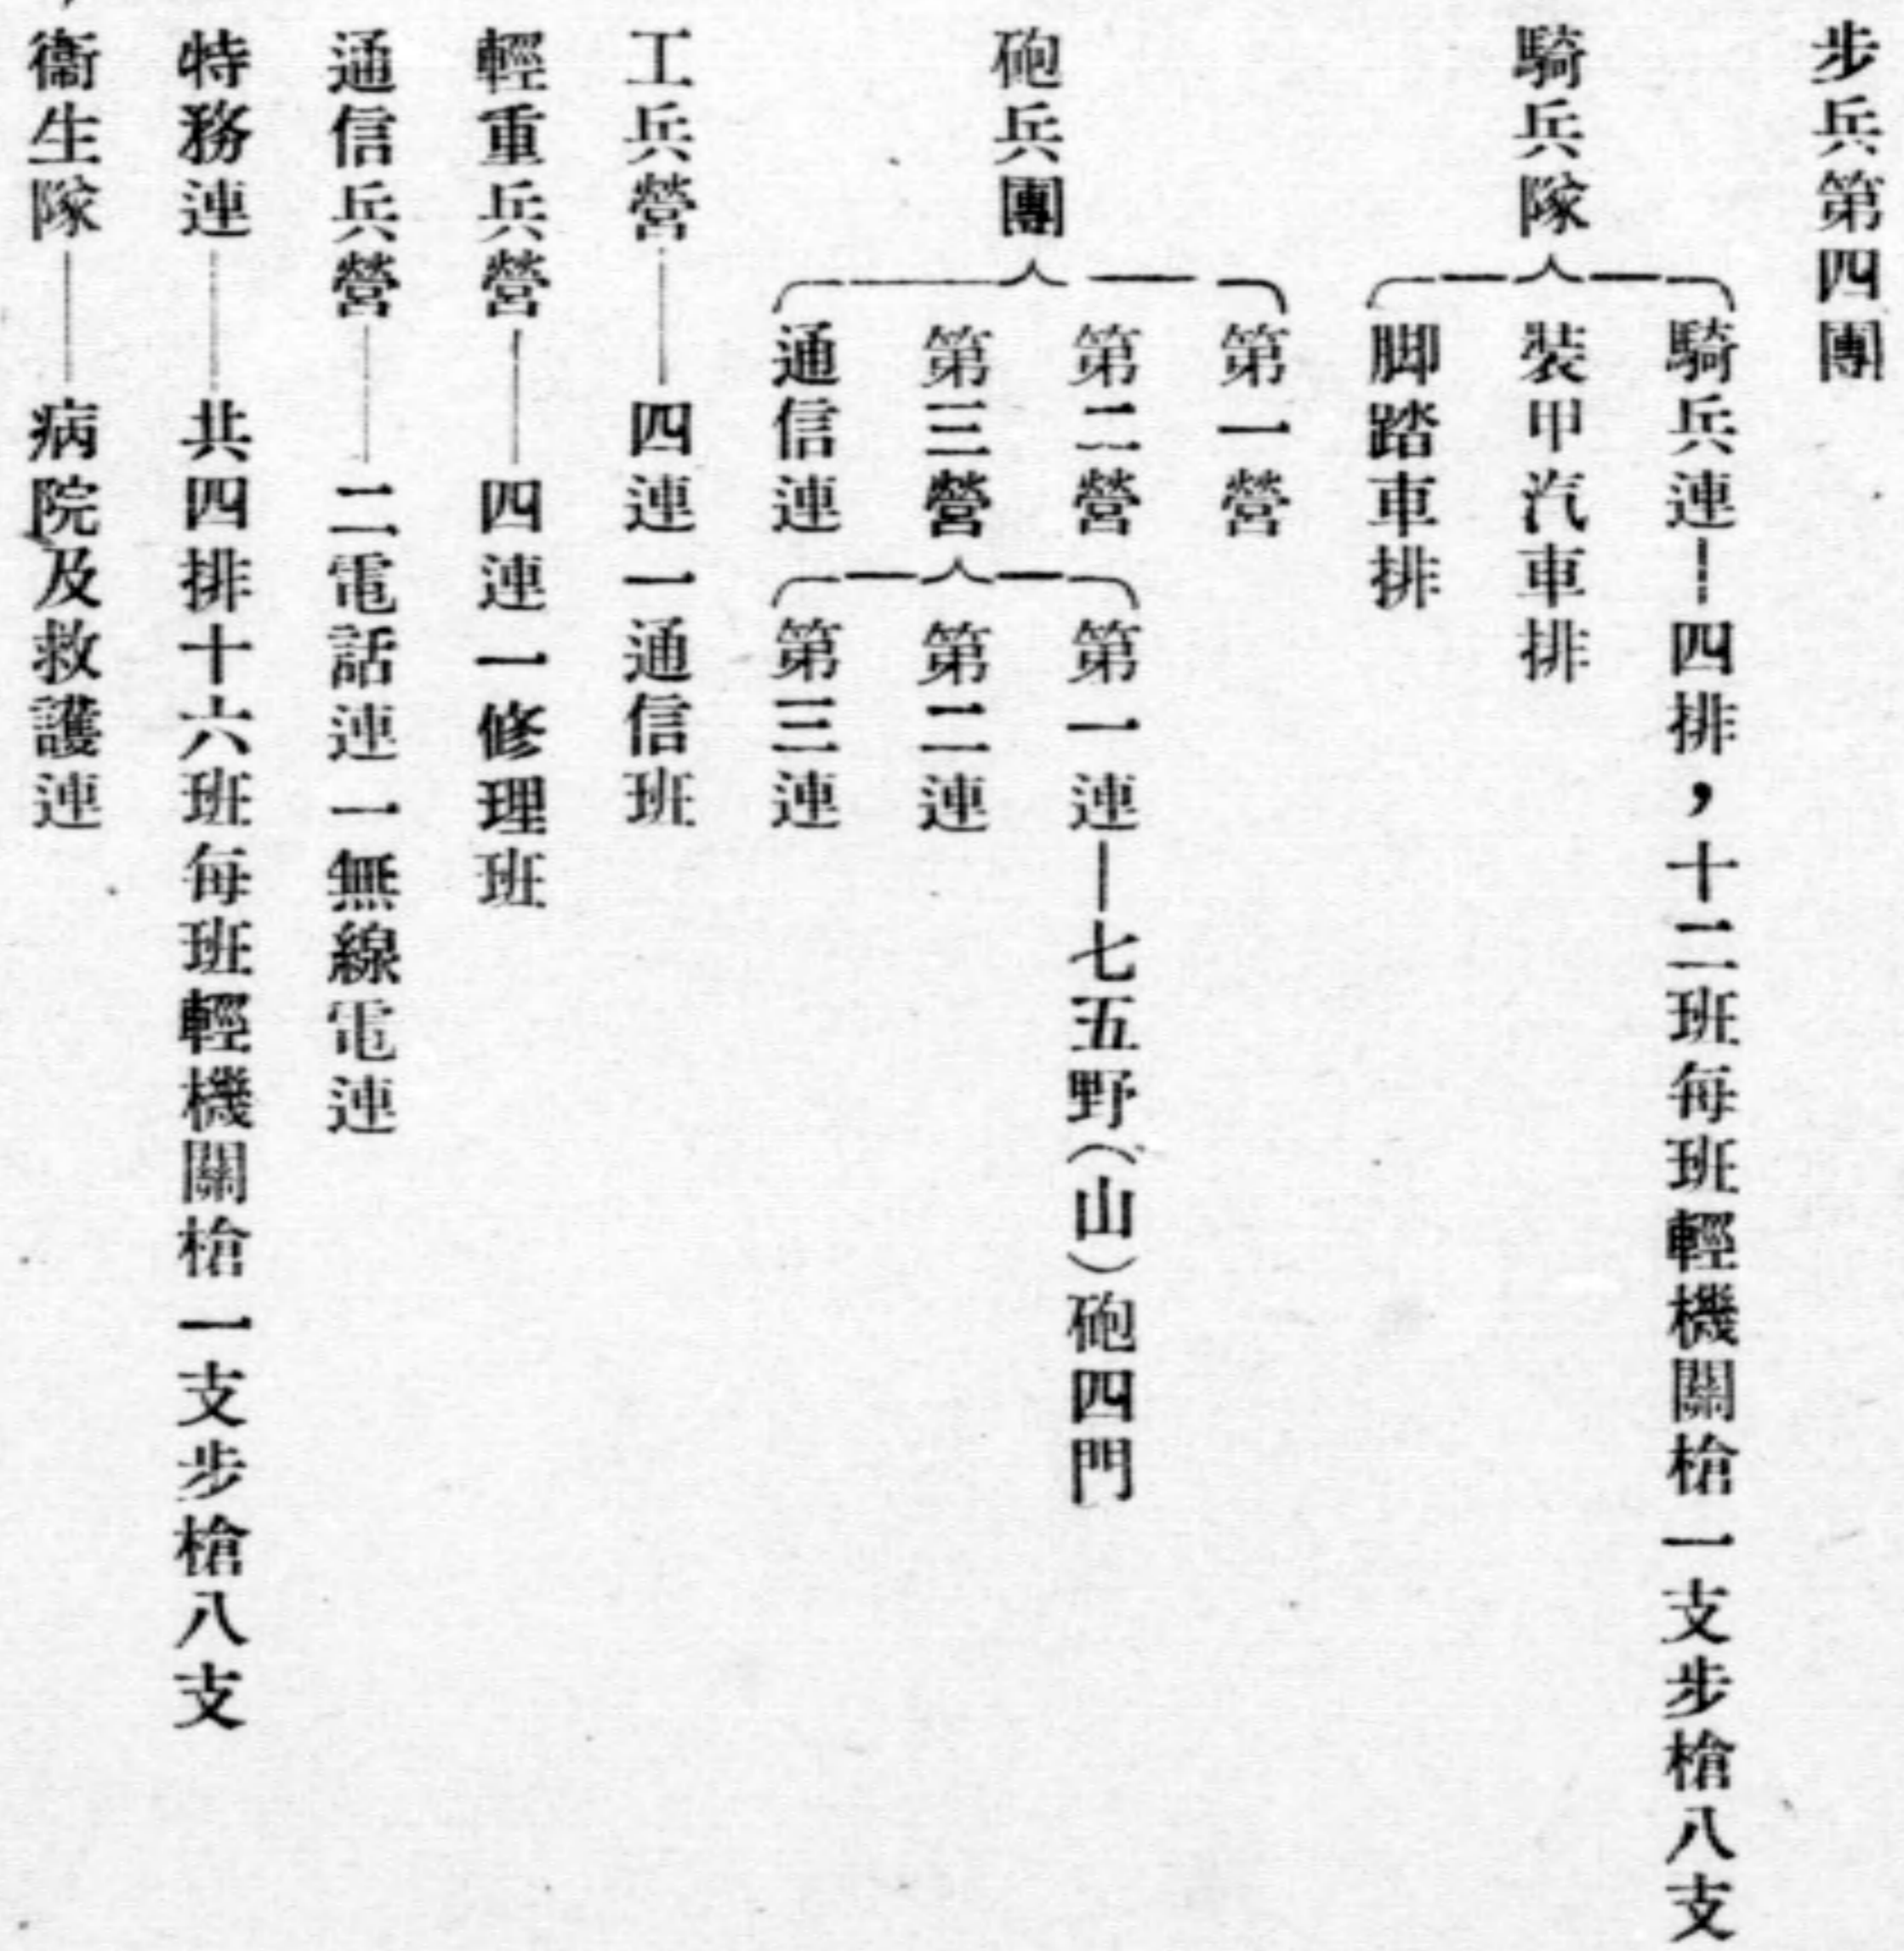 步兵第四團
騎兵隊
騎兵連—四排，十二班每班輕機關槍一支步槍八支
裝甲汽車排
脚踏車排
砲兵團
第一營
第二營
第三營
通信連
第一連—七五野(山)砲四門
第二連
第三連
工兵營——四連一通信班
輕重兵營——四連一修理班
通信兵營——二電話連一無線電連
特務連——共四排十六班每班輕機關槍一支步槍八支
衞生隊——病院及救護連